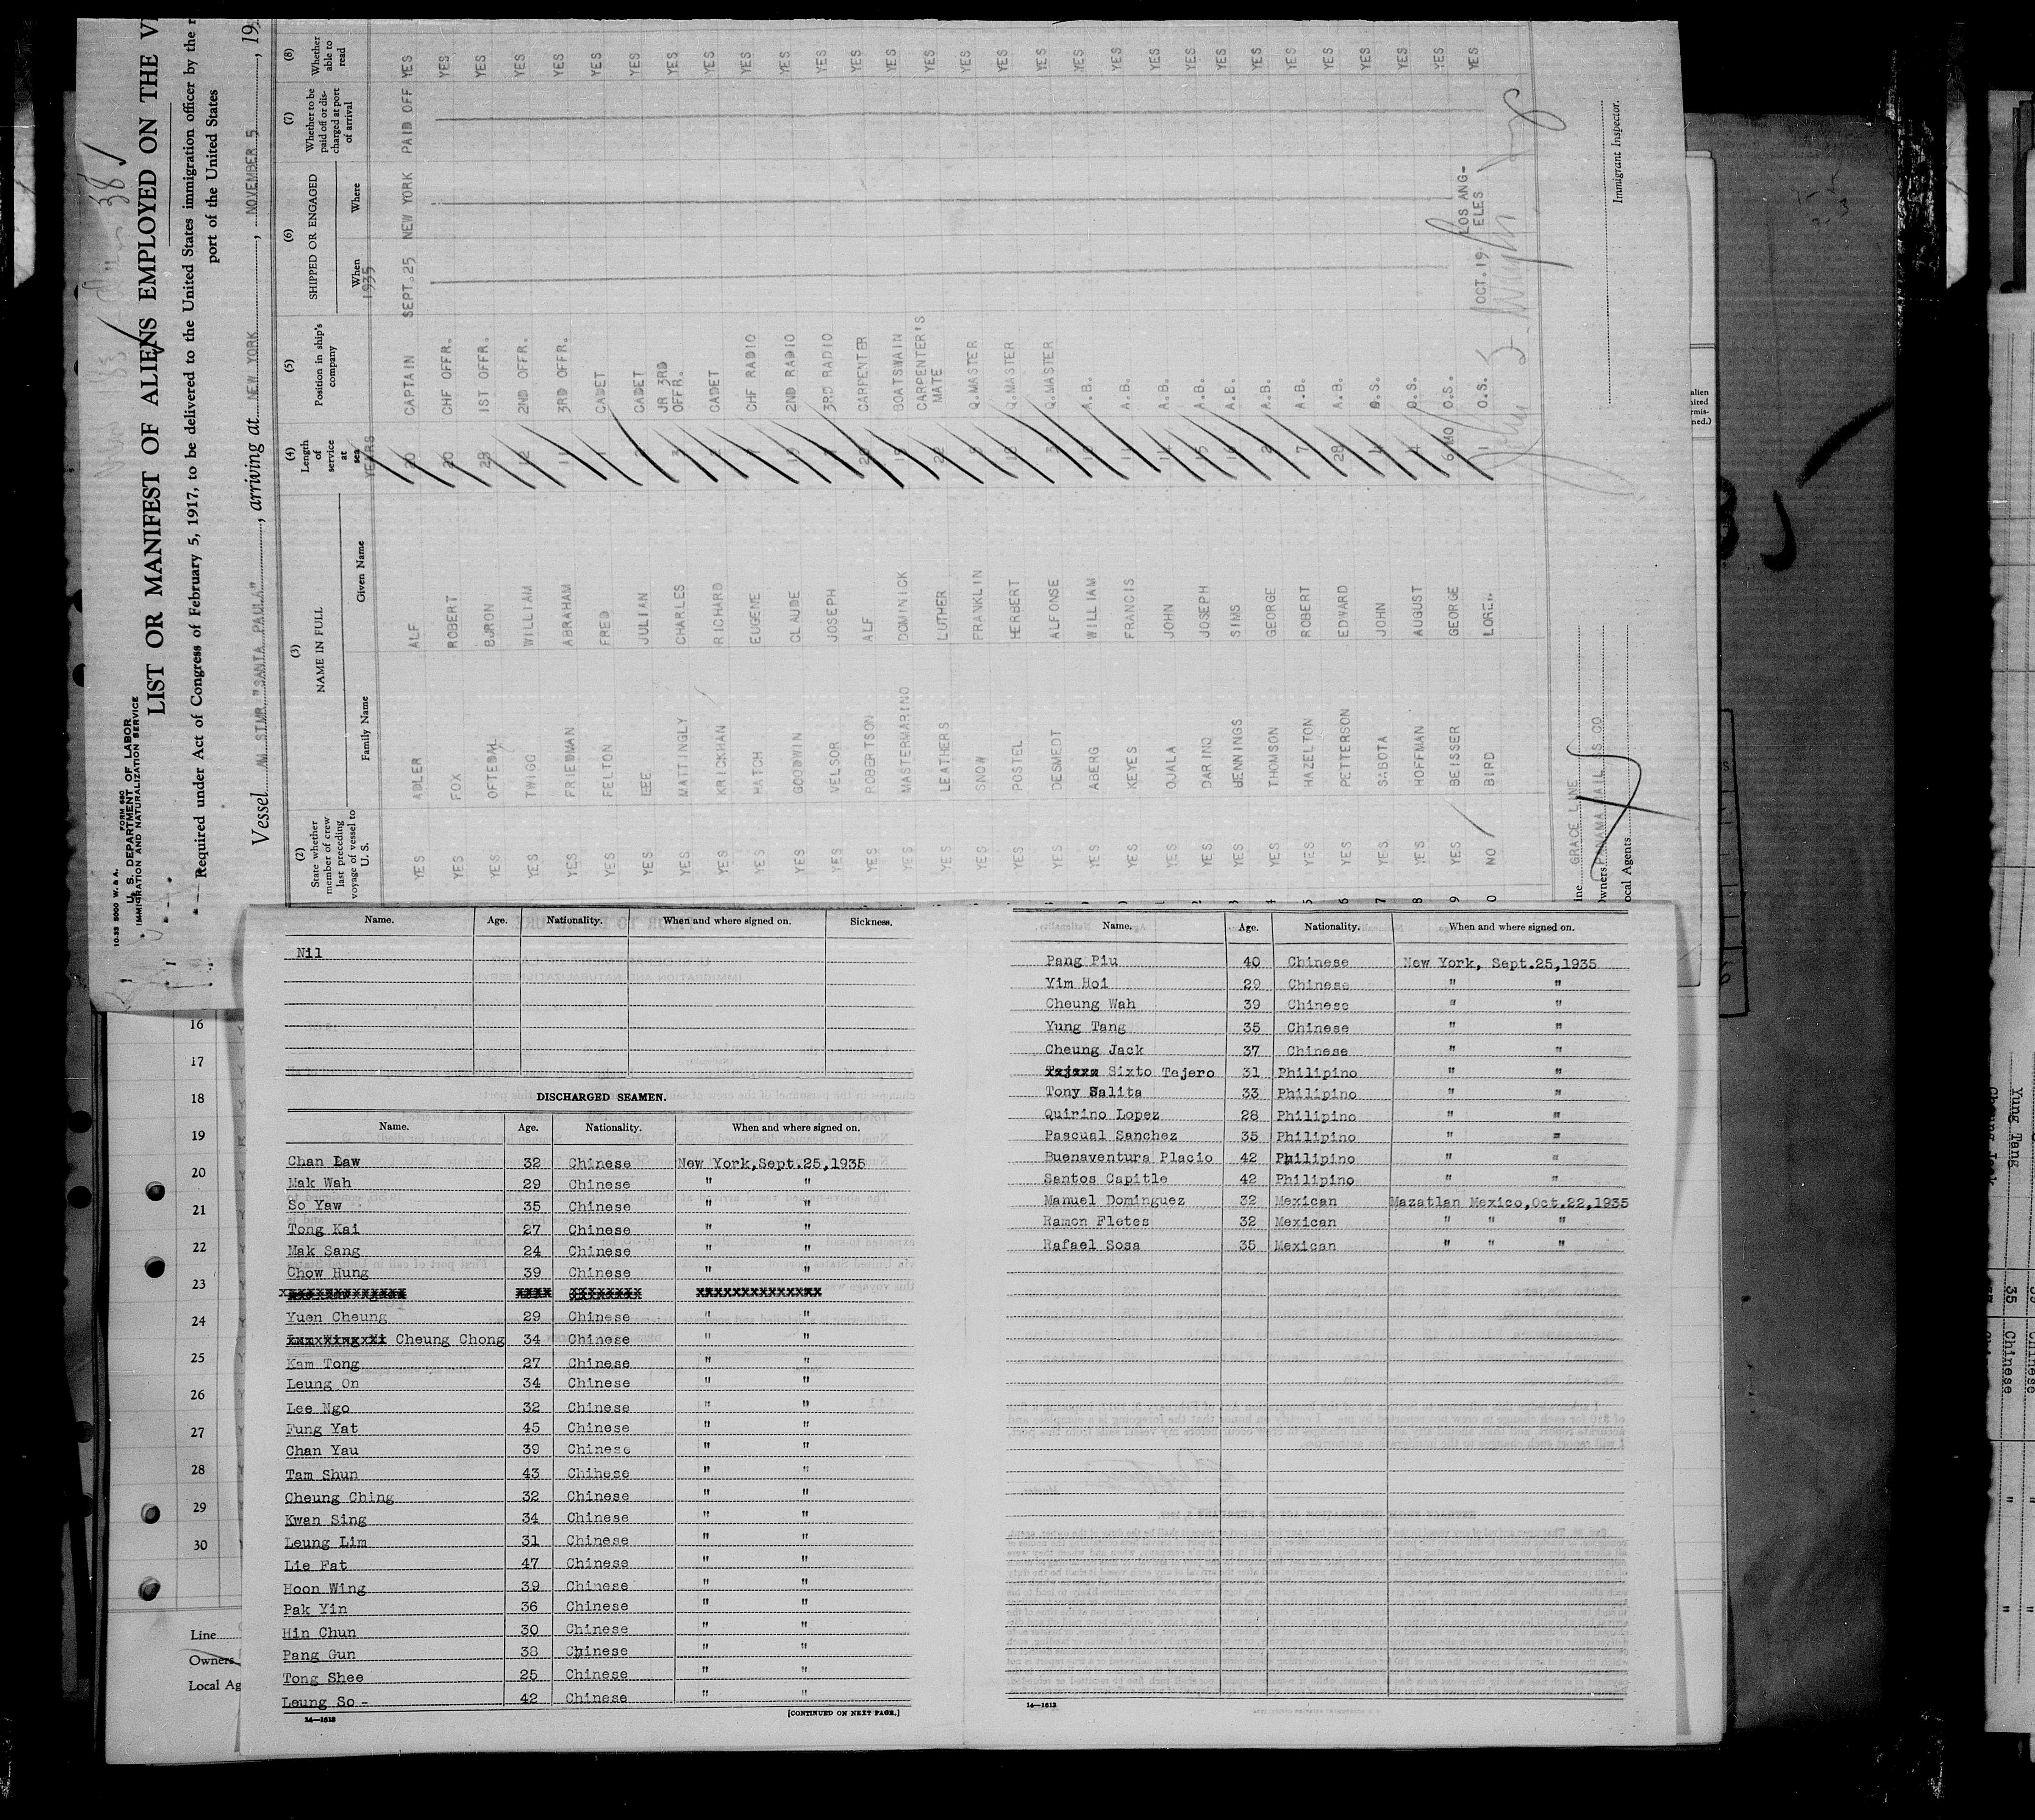 10-33 5000 W. & A.
FORM 680
U. S. DEPARTMENT OF LABOR
IMMIGRATION AND NATURALIZATION SERVICE
LIST OR MANIFEST OF ALIENS EMPLOYED ON THE V
Required under Act of Congress of February 5, 1917, to be delivered to the United States immigration officer by the r
port of the United States
Vessel AM STMR "SANTA PAULA", arriving at NEW YORK, NOVEMBER 5, 19
(2) (3) (4) (5) (6) (7) (8)
State whether member of crew last preceding voyage of vessel to U. S. NAME IN FULL Family Name Given Name Length of service at sea Position in ship's company SHIPPED OR ENGAGED When Where Whether to be paid off or discharged at port of arrival Whether able to read
YEARS 1935
YES ADLER ALF 20 CAPTAIN SEPT.25 NEW YORK PAID OFF YES
YES FOX ROBERT 20 CHF OFFR. YES
YES OFTEDAL BJRON 28 1ST OFFR. YES
YES TWIGG WILLIAM 12 2ND OFFR. YES
YES FRIEDMAN ABRAHAM 11 3RD OFFR. YES
YES FELTON FRED 1 CADET YES
YES LEE JULIAN CADET YES
YES MATTINGLY CHARLES 3 JR 3RD OFFR. YES
YES KRICKHAN RICHARD CADET YES
YES HATCH EUGENE CHF RADIO YES
YES GOODWIN CLAUDE 2ND RADIO YES
YES VELSOR JOSEPH 3RD RADIO YES
YES ROBERTSON ALF CARPENTER YES
YES MASTERMARINO DOMINICK 15 BOATSWAIN YES
YES LEATHERS LUTHER 22 CARPENTER'S MATE YES
YES SNOW FRANKLIN Q.MASTER YES
YES POSTEL HERBERT Q.MASTER YES
YES DESMEDT ALFONSE Q.MASTER YES
YES ABERG WILLIAM A.B. YES
YES KEYES FRANCIS 11 A.B. YES
YES OJALA JOHN 14 A.B. YES
YES DARINO JOSEPH 15 A.B. YES
YES JENNINGS SIMS A.B. YES
YES THOMSON GEORGE 2 A.B. YES
YES HAZELTON ROBERT 7 A.B. YES
YES PETTERSON EDWARD 28 A.B. YES
YES SABOTA JOHN 4 O.S. YES
YES HOFFMAN AUGUST 4 O.S. YES
YES BEISSER GEORGE 6 MO O.S. YES
NO BIRD LOREN 1 O.S. OCT.19 LOS ANGELES YES
Line GRACE LINE
Owners PANAMA MAIL SS CO
Local Agents
Immigrant Inspector.
Name. Age. Nationality. When and where signed on. Sickness.
Nil
DISCHARGED SEAMEN.
Name. Age. Nationality. When and where signed on.
Chan Law 32 Chinese New York,Sept.25,1935
Mak Wah 29 Chinese " "
So Yaw 35 Chinese " "
Tong Kai 27 Chinese " "
Mak Sang 24 Chinese " "
Chow Hung 39 Chinese " "
Yuen Cheung 29 Chinese " "
Cheung Chong 34 Chinese " "
Kam Tong 27 Chinese " "
Leung On 34 Chinese " "
Lee Ngo 32 Chinese " "
Fung Yat 45 Chinese " "
Chan Yau 39 Chinese " "
Tam Shun 43 Chihese " "
Cheung Ching 32 Chinese " "
Kwan Sing 34 Chinese " "
Leung Lim 31 Chinese " "
Lie Fat 47 Chinese " "
Hoon Wing 39 Chinese " "
Pak Yin 36 Chinese " "
Hin Chun 30 Chinese " "
Pang Gun 38 Chinese " "
Tong Shee 25 Chinese " "
Leung So - 42 Chinese " "
14—1613 [CONTINUED ON NEXT PAGE.]
Name. Age. Nationality. When and where signed on.
Pang Piu 40 Chinese New York, Sept.25,1935
Yim Hoi 29 Chinese " "
Cheung Wah 39 Chinese " "
Yung Tang 35 Chinese " "
Cheung Jack 37 Chinese " "
Sixto Tejero 31 Philipino " "
Tony Salita 33 Philipino " "
Quirino Lopez 28 Philipino " "
Pascual Sanchez 35 Philipino " "
Buenaventura Placio 42 Philipino " "
Santos Capitle 42 Philipino " "
Manuel Dominguez 32 Mexican Mazatlan Mexico,Oct.22,1935
Ramon Fletes 32 Mexican " " "
Rafael Sosa 35 Mexican " " "
14—1613
16
17
18
19
20
21
22
23
24
25
26
27
28
29
30
Line
Owners
Local Ag
Yung Tang 35 Chinese "